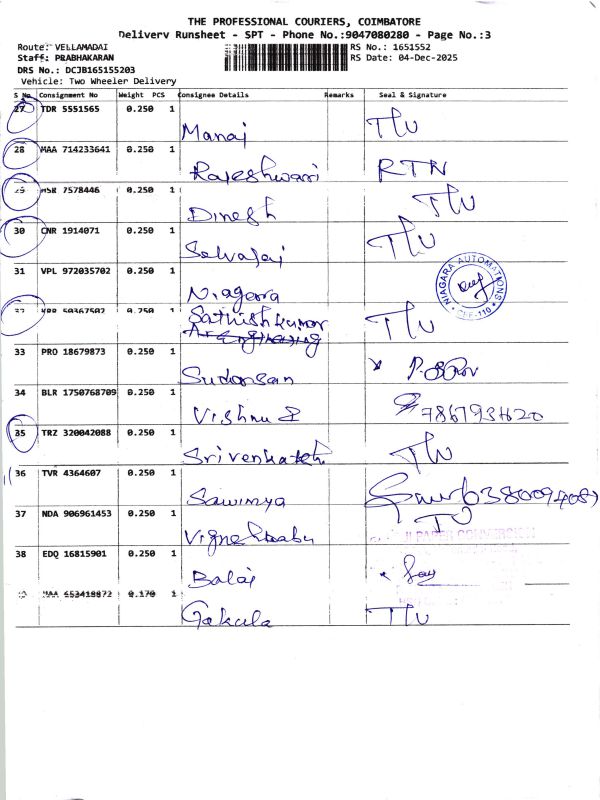 THE PROFESSIONAL COURIERS, COIMBATORE
Delivery Runsheet - SPT - Phone No.:9047080280 - Page No.:3
Route: VELLAMADAI RS No.: 1651552
Staff: PRABHAKARAN RS Date: 04-Dec-2025
DRS No.: DCJB165155203
Vehicle: Two Wheeler Delivery
S No. Consignment No Weight PCS Consignee Details Remarks Seal & Signature
27 TDR 5551565 0.250 1
Manaj TLV
28 MAA 714233641 0.250 1
Rajeshwari RTN
29 MSR 7578446 0.250 1
Dinesh TLV
30 CNR 1914071 0.250 1
Selvaraj TLV
31 VPL 972035702 0.250 1
Niagara
NIAGARA AUTOMATIONS
0.250 1
Sathishkumar TLV
33 PRO 18679873 0.250 1
Sudarsan
34 BLR 1750768709 0.250 1
Vishnu
35 TRZ 320042088 0.250 1
Srivenkatesh TLV
36 TVR 4364607 0.250 1
Sawmya
37 NDA 906961453 0.250 1
Vigneshbabu
38 EDQ 16815901 0.250 1
Balaj
MAA 653418872 0.170 1
Gakula TLV